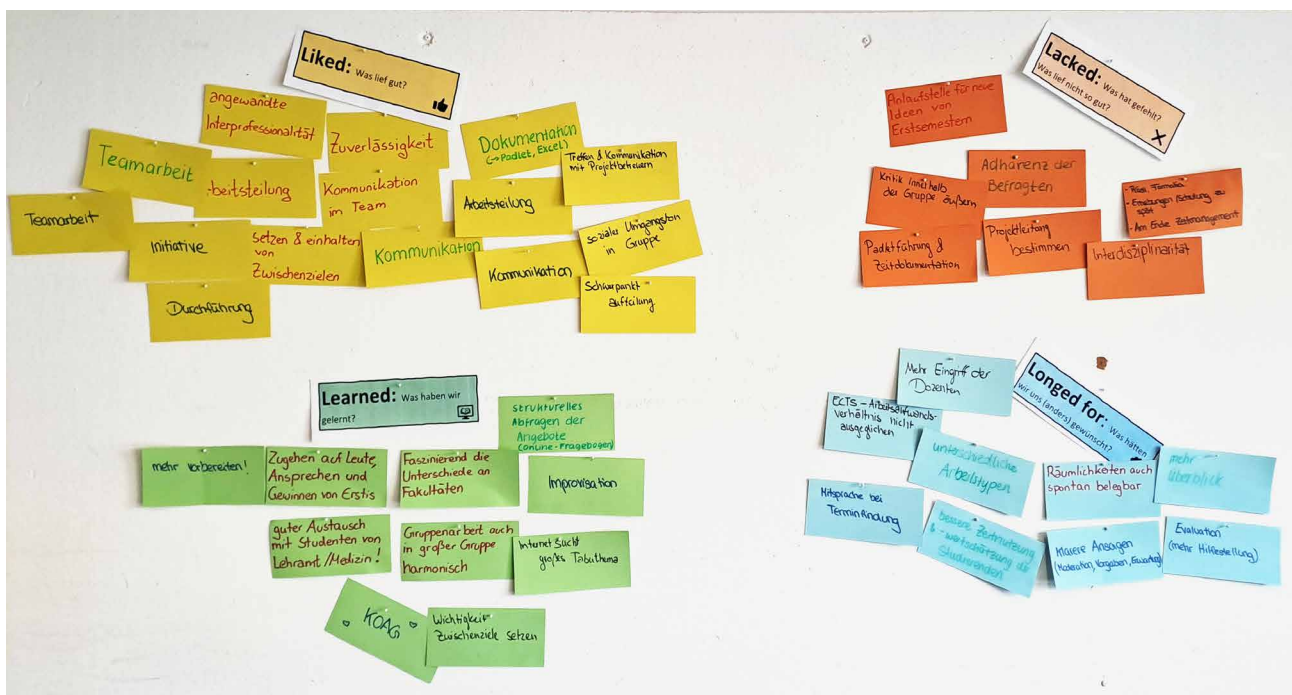 Liked: Was lief gut?
angewandte
Interprofessionalität
Zuverlässigkeit
Dokumentation
(→ Padlet, Excel)
Treffen & Kommunikation
mit Projektbetreuern
Teamarbeit
beitsteilung
Kommunikation
im Team
Arbeitsteilung
Teamarbeit
Initiative
setzen & einhalten
von
Zwischenzielen
Kommunikation
Kommunikation
sozialer Umgangston
in Gruppe
Durchführung
Schwerpunkt
aufteilung
Lacked: Was hat gefehlt?
Was lief nicht so gut?
Anlaufstelle für neue
Ideen von
Erstsemestern
Kritik innerhalb
der Gruppe äußern
Adhärenz der
Befragten
- Formalia
- Schulung zu
spät
- Am Ende Zeitmanagement
Padletführung &
Zeitdokumentation
Projektleitung
bestimmen
Interdisziplinarität
Learned: Was haben wir
gelernt?
strukturelles
Abfragen der
Angebote
(online-Fragebogen)
mehr vorbereiten!
Zugehen auf Leute,
Ansprechen und
Gewinnen von Erstis
Faszinierend die
Unterschiede an
Fakultäten
Improvisation
guter Austausch
mit Studenten von
Lehramt/Medizin!
Gruppenarbeit auch
in großer Gruppe
harmonisch
Internetsucht
großes Tabuthema
KOAG
Wichtigkeit
Zwischenziele setzen
Longed for: Was hätten
wir uns (anders) gewünscht?
Mehr Eingriff der
Dozenten
ECTS - Arbeitsaufwands-
verhältnis nicht
ausgeglichen
unterschiedliche
Arbeitstypen
Räumlichkeiten auch
spontan belegbar
mehr
überblick
Mitsprache bei
Terminfindung
bessere Zeitnutzung
& -wertschätzung der
Studierenden
klarere Ansagen
(Moderation, Vorgaben, Erwartung)
Evaluation
(mehr Hilfestellung)